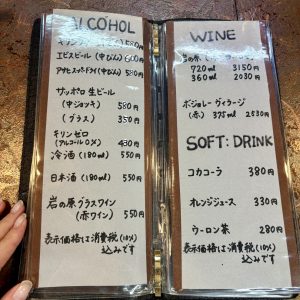 ALCOHOL
キリンラガー(中びん)580円
エビスビール(中びん)600円
アサヒスーパードライ(中びん)580円
サッポロ生ビール
(中ジョッキ) 580円
(グラス) 350円
キリンゼロ
(アルコール0%) 430円
冷酒(180ml) 550円
日本酒(180ml) 550円
岩の原グラスワイン
(赤ワイン) 550円
表示価格は消費税(10%)
込みです
WINE
720ml 3150円
360ml 2030円
ボジョレーヴィラージ
(赤) 375ml 2530円
SOFT:DRINK
コカコーラ 380円
オレンジジュース 330円
ウーロン茶 280円
表示価格は消費税(10%)
込みです